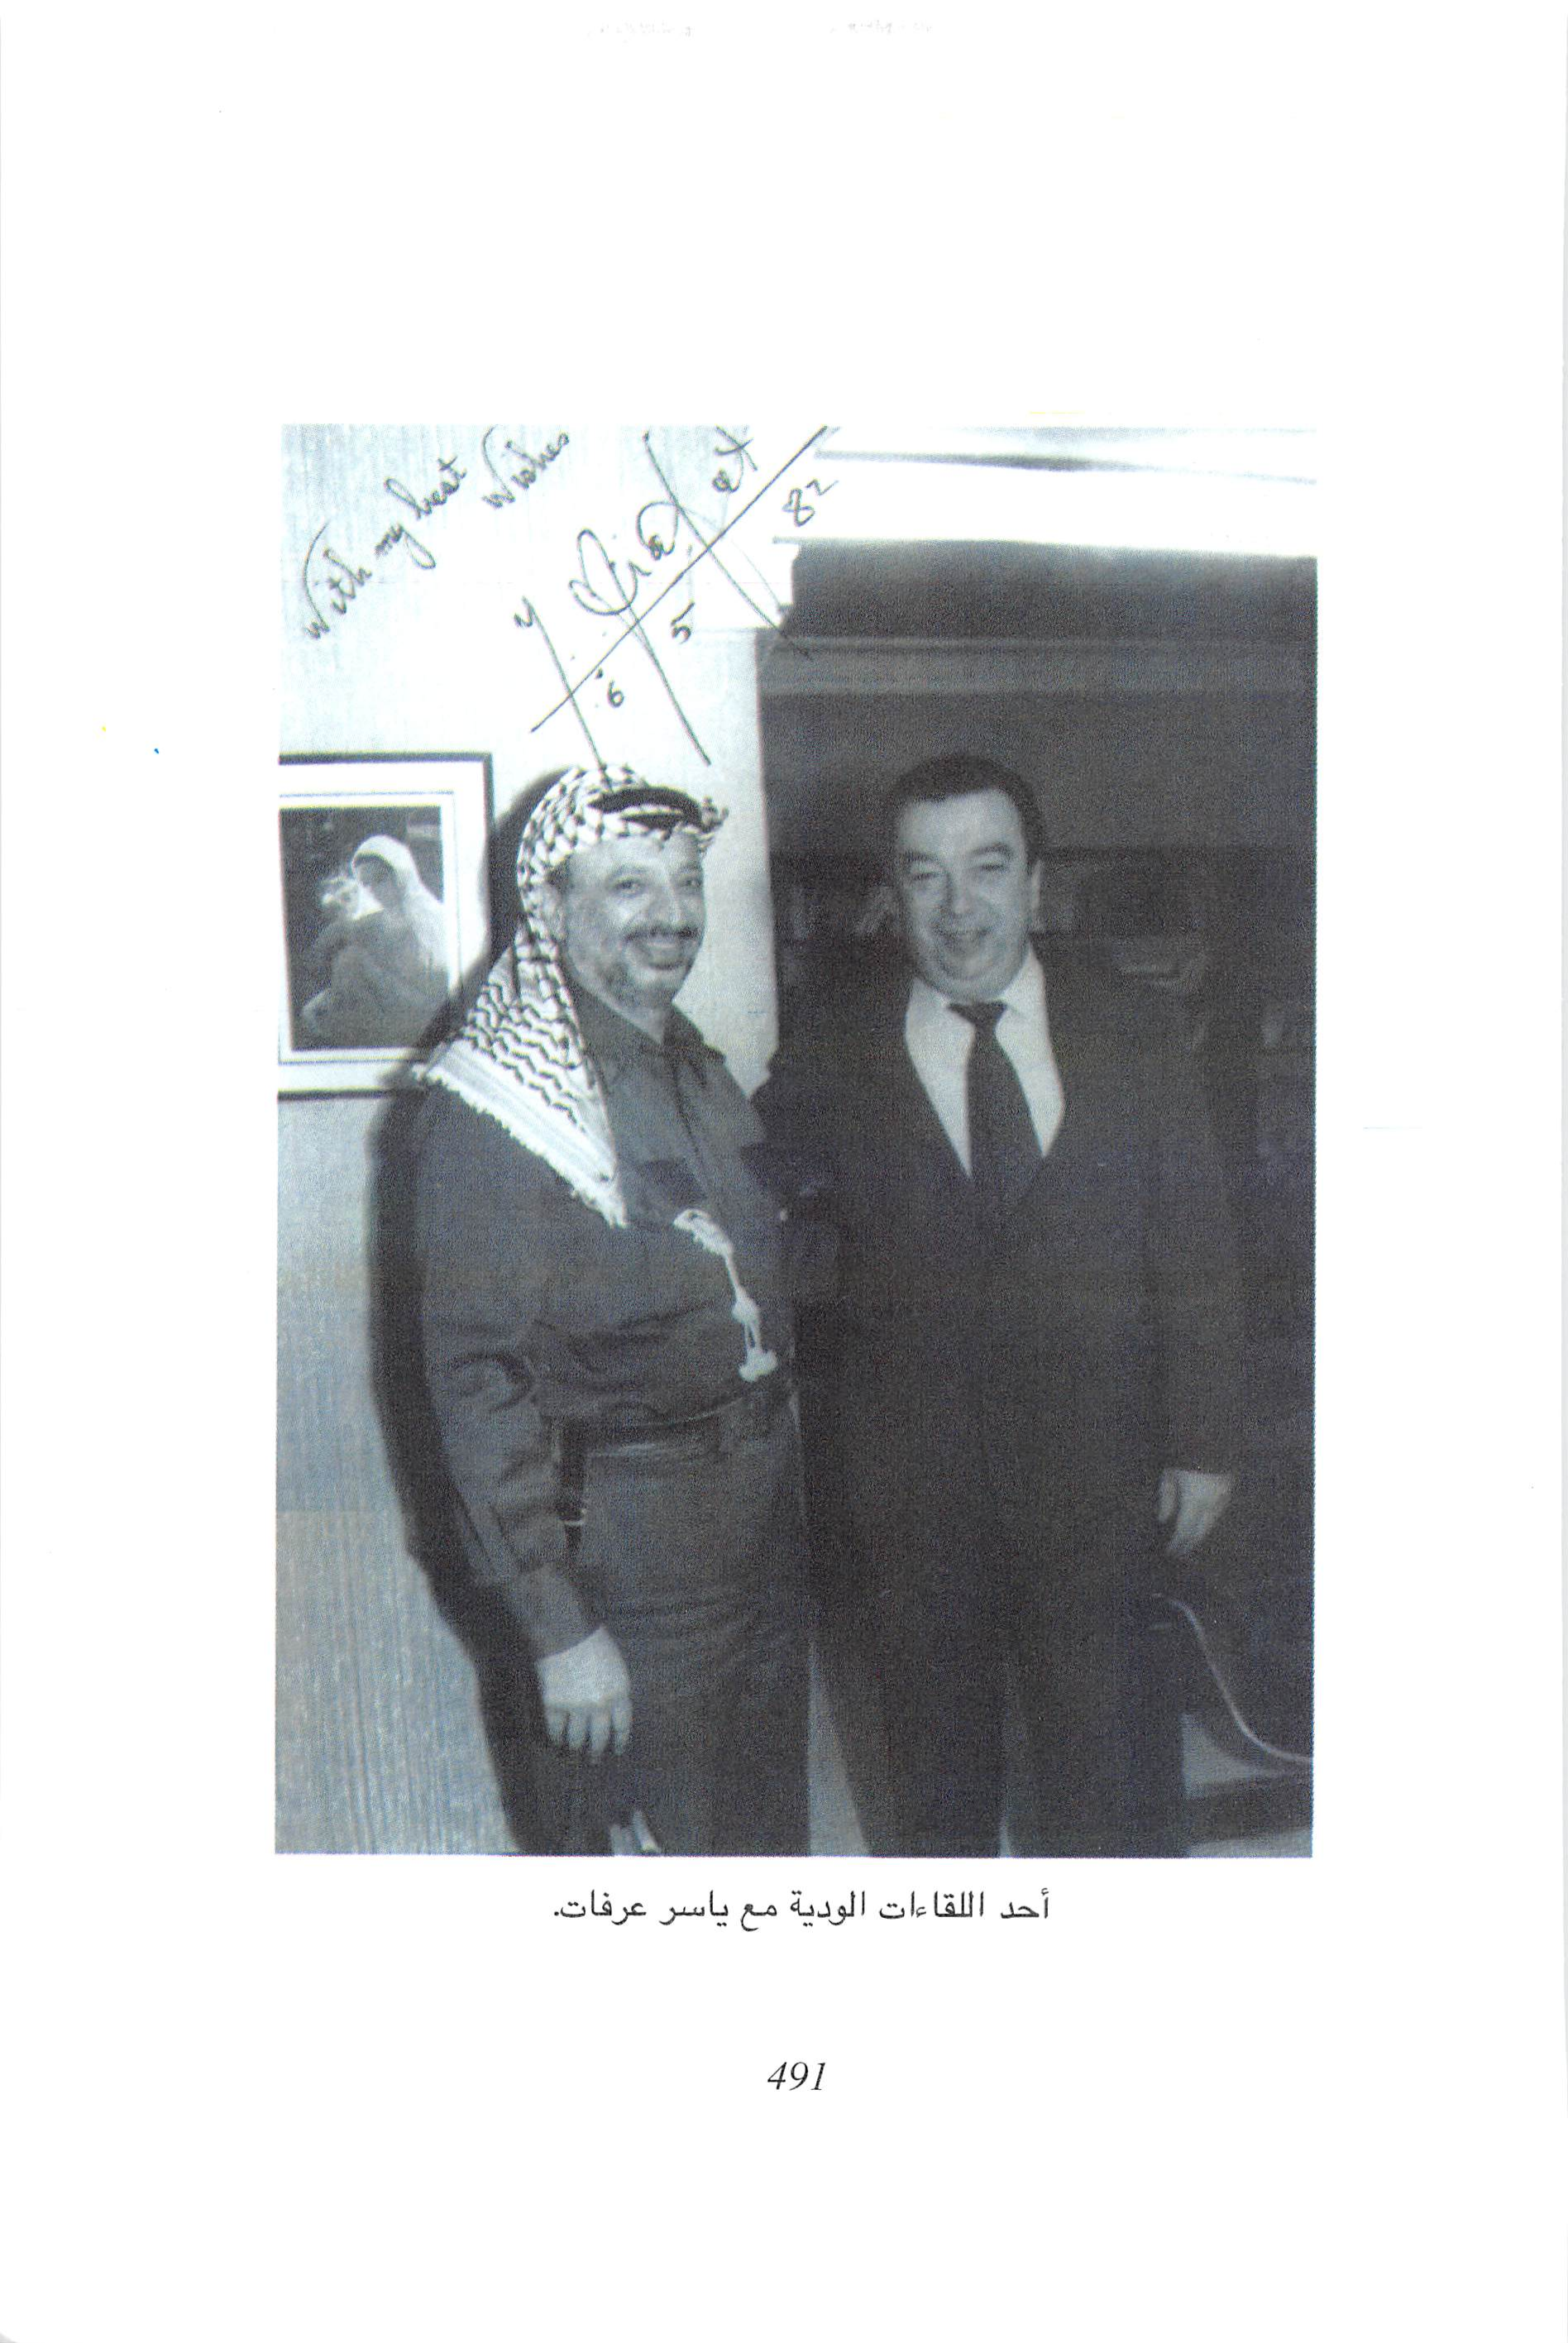 With my best Wishes
Y Arafat
6 5 82
أحد اللقاءات الودية مع ياسر عرفات.
491